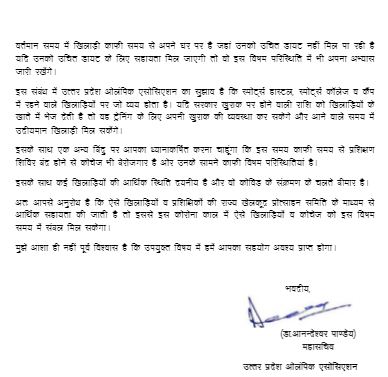 वर्तमान समय में खिलाड़ी काफी समय से अपने घर पर है जहां उनको उचित डायट नहीं मिल पा रही है
यदि उनको उचित डायट के लिए सहायता मिल जाएगी तो वो इस विषम परिस्थिति में भी अपना अभ्यास
जारी रखेंगे।
इस संबंध में उत्तर प्रदेश ओलंपिक एसोसिएशन का सुझाव है कि स्पोर्ट्स हास्टल, स्पोर्ट्स कॉलेज व कैंप
में रहने वाले खिलाड़ियों पर जो व्यय होता है। यदि सरकार खुराक पर होने वाली राशि को खिलाड़ियों के
खाते में भेज देती है तो वह ट्रेनिंग के लिए अपनी खुराक की व्यवस्था कर सकेंगे और आने वाले समय में
उदीयमान खिलाड़ी मिल सकेंगे।
इसके साथ एक अन्य बिंदु पर आपका ध्यानाकर्षित करना चाहूंगा कि इस समय काफी समय से प्रशिक्षण
शिविर बंद होने से कोचेज भी बेरोजगार है और उनके सामने काफी विषम परिस्थितियां है।
इसके साथ कई खिलाड़ियों की आर्थिक स्थिति दयनीय है और वो कोविड के संक्रमण के चलते बीमार है।
अतः आपसे अनुरोध है कि ऐसे खिलाड़ियों व प्रशिक्षिकों की राज्य खेलकूद प्रोत्साहन समिति के माध्यम से
आर्थिक सहायता की जाती है तो इससे इस कोरोना काल में ऐसे खिलाड़ियों व कोचेज को इस विषम
समय में संबल मिल सकेगा।
मुझे आशा ही नहीं पूर्ण विश्वास है कि उपयुक्त विषय में हमें आपका सहयोग अवश्य प्राप्त होगा।
भवदीय,
(डा.आनन्देश्वर पाण्डेय)
महासचिव
उत्तर प्रदेश ओलंपिक एसोसिएशन